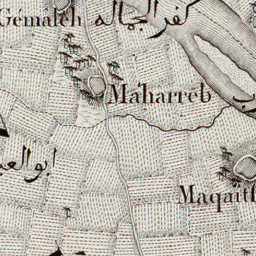 Gémaléh
كفر الجماله
Máharréb
ابو الع
Maqaït